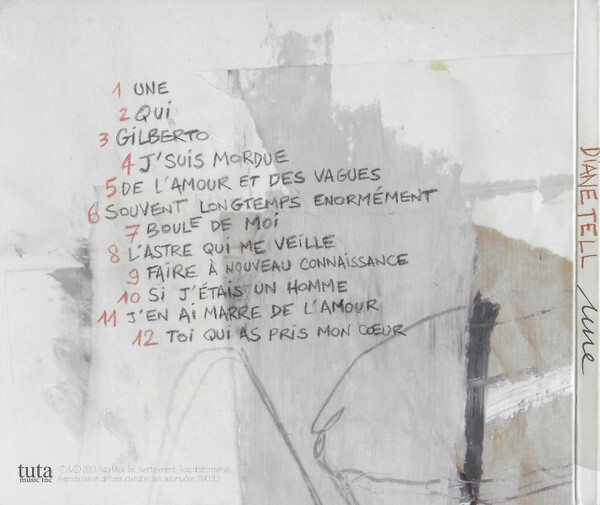 1 UNE
2 QUI
3 GILBERTO
4 J'SUIS MORDUE
5 DE L'AMOUR ET DES VAGUES
6 SOUVENT LONGTEMPS ENORMÉMENT
7 BOULE DE MOI
8 L'ASTRE QUI ME VEILLE
9 FAIRE À NOUVEAU CONNAISSANCE
10 SI J'ÉTAIS UN HOMME
11 J'EN AI MARRE DE L'AMOUR
12 TOI QUI AS PRIS MON CŒUR
tuta
music inc
℗ & © 2013 Tuta Music Inc. Avertissement : Tous droits réservés.
Reproduction et diffusion interdites sans autorisation.
DIANE TELL une